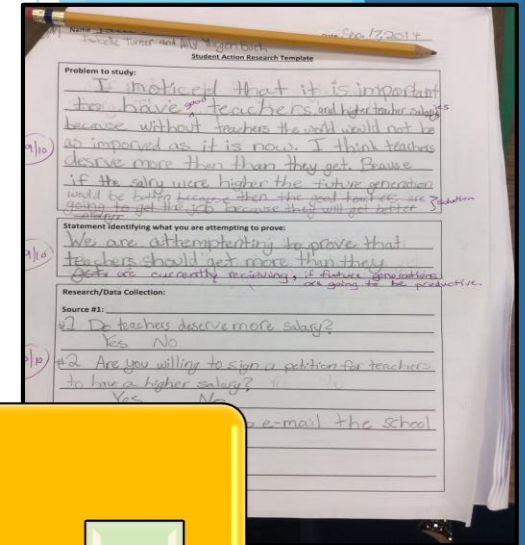 Name
Turner and
Sep 17, 2014
Student Action Research Template
Problem to study:
I noticed that it is important
to have good teachers and higher teacher
because without teachers the world would not be
9/10
as imporved as it is now. I think teachers
desrve more then than they get. Beause
if the salry were higher the future generation
would be better because then the good teachers are
going to get the job because they will get better
Statement identifying what you are attempting to prove:
We are attemptenting to prove that
teachers should get more than they
are currently recieving, if future generations
are going to be productive.
Research/Data Collection:
Source #1:
#1 Do teachers deserve more salary?
Yes No
#2 Are you willing to sign a petition for teachers
to have a higher salary?
Yes No
e-mail the school